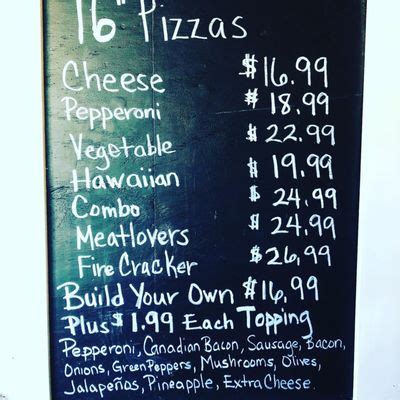 16" Pizzas
Cheese $16.99
Pepperoni $18.99
Vegetable $22.99
Hawaiian $19.99
Combo $24.99
Meatlovers $24.99
Fire Cracker $26,99
Build Your Own $16.99
Plus $1.99 Each Topping
Pepperoni, Canadian Bacon, Sausage, Bacon,
Onions, Green Peppers, Mushrooms, Olives,
Jalapeñas, Pineapple, Extra Cheese.